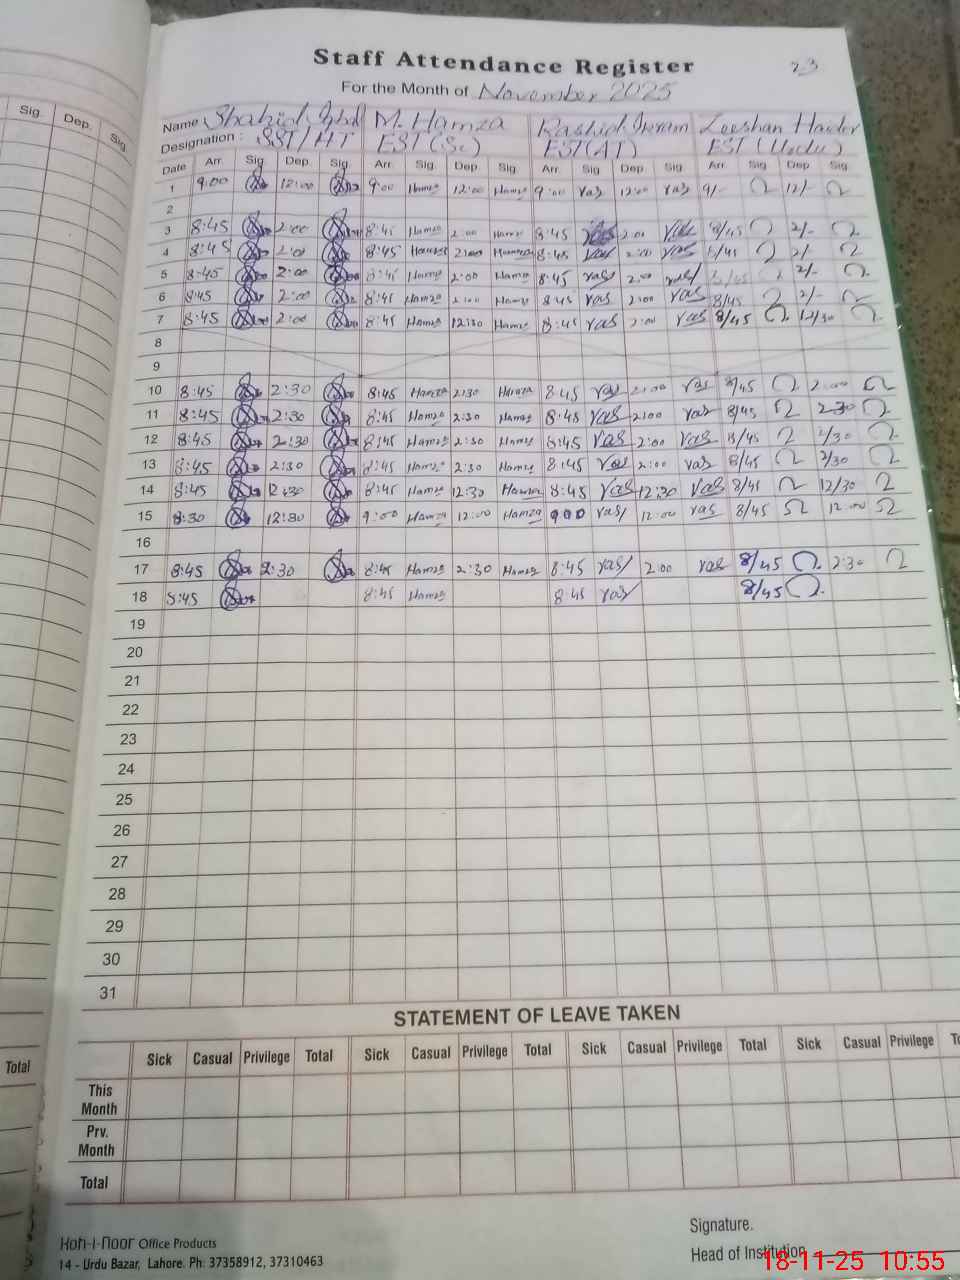 Sig.
Dep.
Sig.
Total
Staff Attendance Register
23
For the Month of November 2025
Name Shahid Iqbal M. Hamza Rashid Ikram Zeeshan Haider
Designation : SST/HT EST(Sc) EST(AT) EST(Urdu)
Date Arr. Sig. Dep. Sig. Arr. Sig. Dep. Sig. Arr. Sig. Dep. Sig. Arr. Sig. Dep. Sig.
1 9:00 12:00 9:00 Hamza 12:00 Hamza 9:00 ras 12:00 ras 9/- 12/-
2
3 8:45 2:00 8:45 Hamza 2:00 Hamza 8:45 2:00 ras 8/45 2/-
4 8:45 2:00 8:45 Hamza 2:00 Hamza 8:45 ras 2:00 ras 8/45 2/-
5 8:45 2:00 8:45 Hamza 2:00 Hamza 8:45 ras 2:00 ras 8/45 2/-
6 8:45 2:00 8:45 Hamza 2:00 Hamza 8:45 ras 2:00 ras 8/45 2/-
7 8:45 2:00 8:45 Hamza 12:30 Hamza 8:45 ras 2:00 ras 8/45 12/30
8
9
10 8:45 2:30 8:45 Hamza 2:30 Hamza 8:45 ras 2:00 ras 8/45 2:00
11 8:45 2:30 8:45 Hamza 2:30 Hamza 8:45 ras 2:00 ras 8/45 2:30
12 8:45 2:30 8:45 Hamza 2:30 Hamza 8:45 ras 2:00 ras 8/45 2/30
13 8:45 2:30 8:45 Hamza 2:30 Hamza 8:45 ras 2:00 ras 8/45 2/30
14 8:45 12:30 8:45 Hamza 12:30 Hamza 8:45 ras 12:30 ras 8/45 12/30
15 8:30 12:30 9:00 Hamza 12:00 Hamza 900 ras 12:00 ras 8/45 12:00
16
17 8:45 2:30 8:45 Hamza 2:30 Hamza 8:45 ras 2:00 ras 8/45 2:30
18 8:45 8:45 Hamza 8:45 ras 8/45
19
20
21
22
23
24
25
26
27
28
29
30
31
STATEMENT OF LEAVE TAKEN
Sick Casual Privilege Total Sick Casual Privilege Total Sick Casual Privilege Total Sick Casual Privilege
This Month
Prv. Month
Total
Signature.
Head of Institution
Koh-i-noor Office Products
14 - Urdu Bazar, Lahore. Ph: 37358912, 37310463
18-11-25 10:55